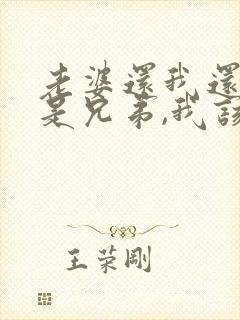 老婆還我還
是兄弟,我該
王荣剛